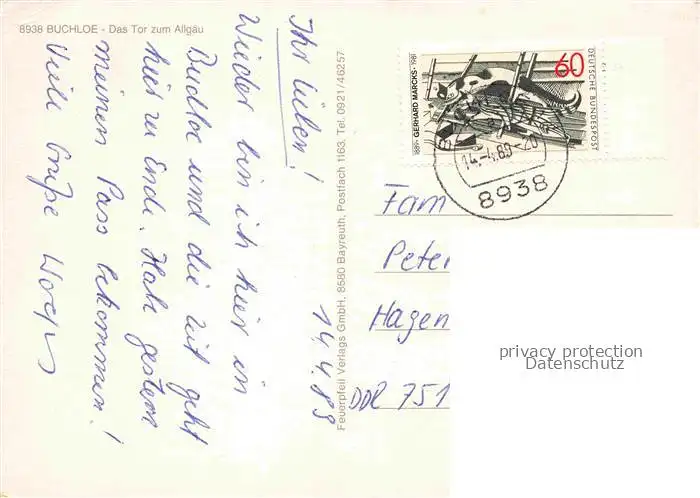 8938 BUCHLOE - Das Tor zum Allgäu
Ihr Lieben!
Wieder bin ich hier in
Buchloe und die Zeit geht
hier zu Ende. Habe gestern
meinen Pass bekommen!
Viele Grüße
14.4.89
Feuerpfeil Verlags GmbH, 8580 Bayreuth, Postfach 1163, Tel. 0921/46257
60
DEUTSCHE BUNDESPOST
1889 GERHARD MARCKS 1981
14.-4.89-20
8938
Fam
Peter
Hagen
DDR 751
privacy protection
Datenschutz